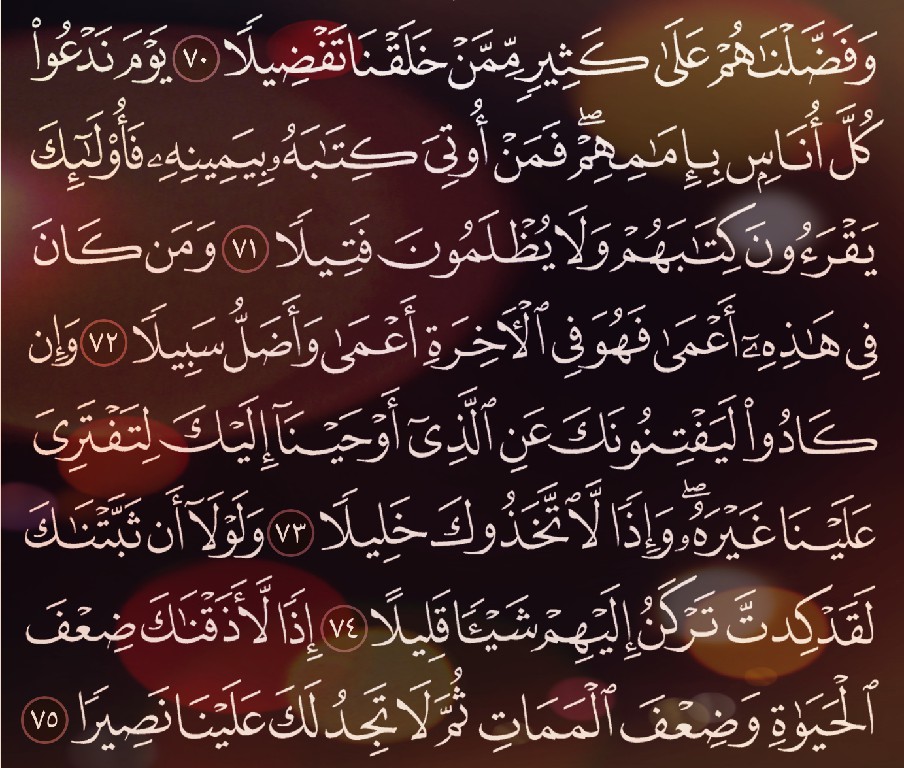 وَفَضَّلْنَٰهُمْ عَلَىٰ كَثِيرٍ مِّمَّنْ خَلَقْنَا تَفْضِيلًا ٧٠ يَوْمَ نَدْعُوا۟
كُلَّ أُنَاسٍۭ بِإِمَٰمِهِمْ ۖ فَمَنْ أُوتِىَ كِتَٰبَهُۥ بِيَمِينِهِۦ فَأُو۟لَٰٓئِكَ
يَقْرَءُونَ كِتَٰبَهُمْ وَلَا يُظْلَمُونَ فَتِيلًا ٧١ وَمَن كَانَ
فِى هَٰذِهِۦٓ أَعْمَىٰ فَهُوَ فِى ٱلْءَاخِرَةِ أَعْمَىٰ وَأَضَلُّ سَبِيلًا ٧٢ وَإِن
كَادُوا۟ لَيَفْتِنُونَكَ عَنِ ٱلَّذِىٓ أَوْحَيْنَآ إِلَيْكَ لِتَفْتَرِىَ
عَلَيْنَا غَيْرَهُۥ ۖ وَإِذًا لَّٱتَّخَذُوكَ خَلِيلًا ٧٣ وَلَوْلَآ أَن ثَبَّتْنَٰكَ
لَقَدْ كِدتَّ تَرْكَنُ إِلَيْهِمْ شَيْـًٔا قَلِيلًا ٧٤ إِذًا لَّأَذَقْنَٰكَ ضِعْفَ
ٱلْحَيَوٰةِ وَضِعْفَ ٱلْمَمَاتِ ثُمَّ لَا تَجِدُ لَكَ عَلَيْنَا نَصِيرًا ٧٥